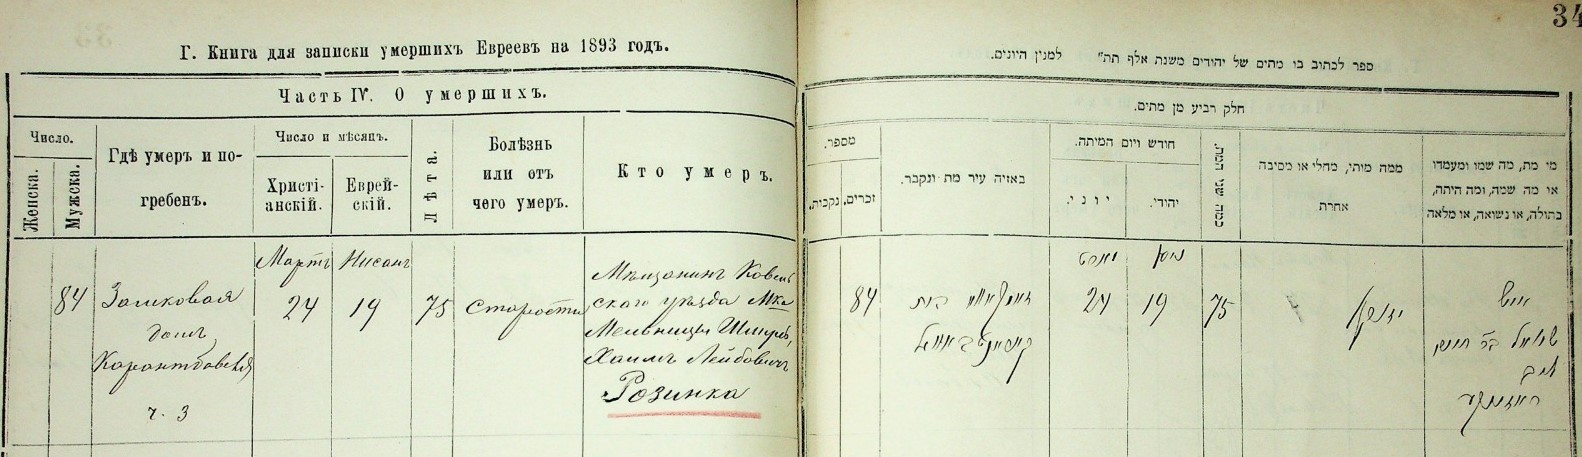 34
Г. Книга для записки умершихъ Евреевъ на 1893 годъ.
Часть IV. О умершихъ.
Число.
Женска.
Мужска.
Гдѣ умеръ и по-
гребенъ.
Число и мѣсяцъ.
Христі-
анскій.
Еврей-
скій.
Лѣта.
Болѣзнь
или отъ
чего умеръ.
Кто умеръ.
84
Замковая
домъ
ч. 3
Мартъ
24
Нисанъ
19
75
Старости
Мѣщанинъ Ковель
скаго уѣзда Мка
Мельницы
Хаимъ Лейбовичъ
Розинка
ספר לכתוב בו מתים של יהודים משנת אלף תת״ למנין היונים.
חלק רביע מן מתים.
מספר.
זכרים.
נקבית.
באזיה עיר מת ונקבר.
חודש ויום המיתה.
יוני.
יהודי.
כמה שני המת.
ממה מותי, מחלי או מסיבה
אחרת
מי מת, מה שמו ומעמדו
או מה שמה, ומה היתה,
בתולה, או נשואה, או מלאה
84
בית
מארט
24
ניסן
19
75
איש